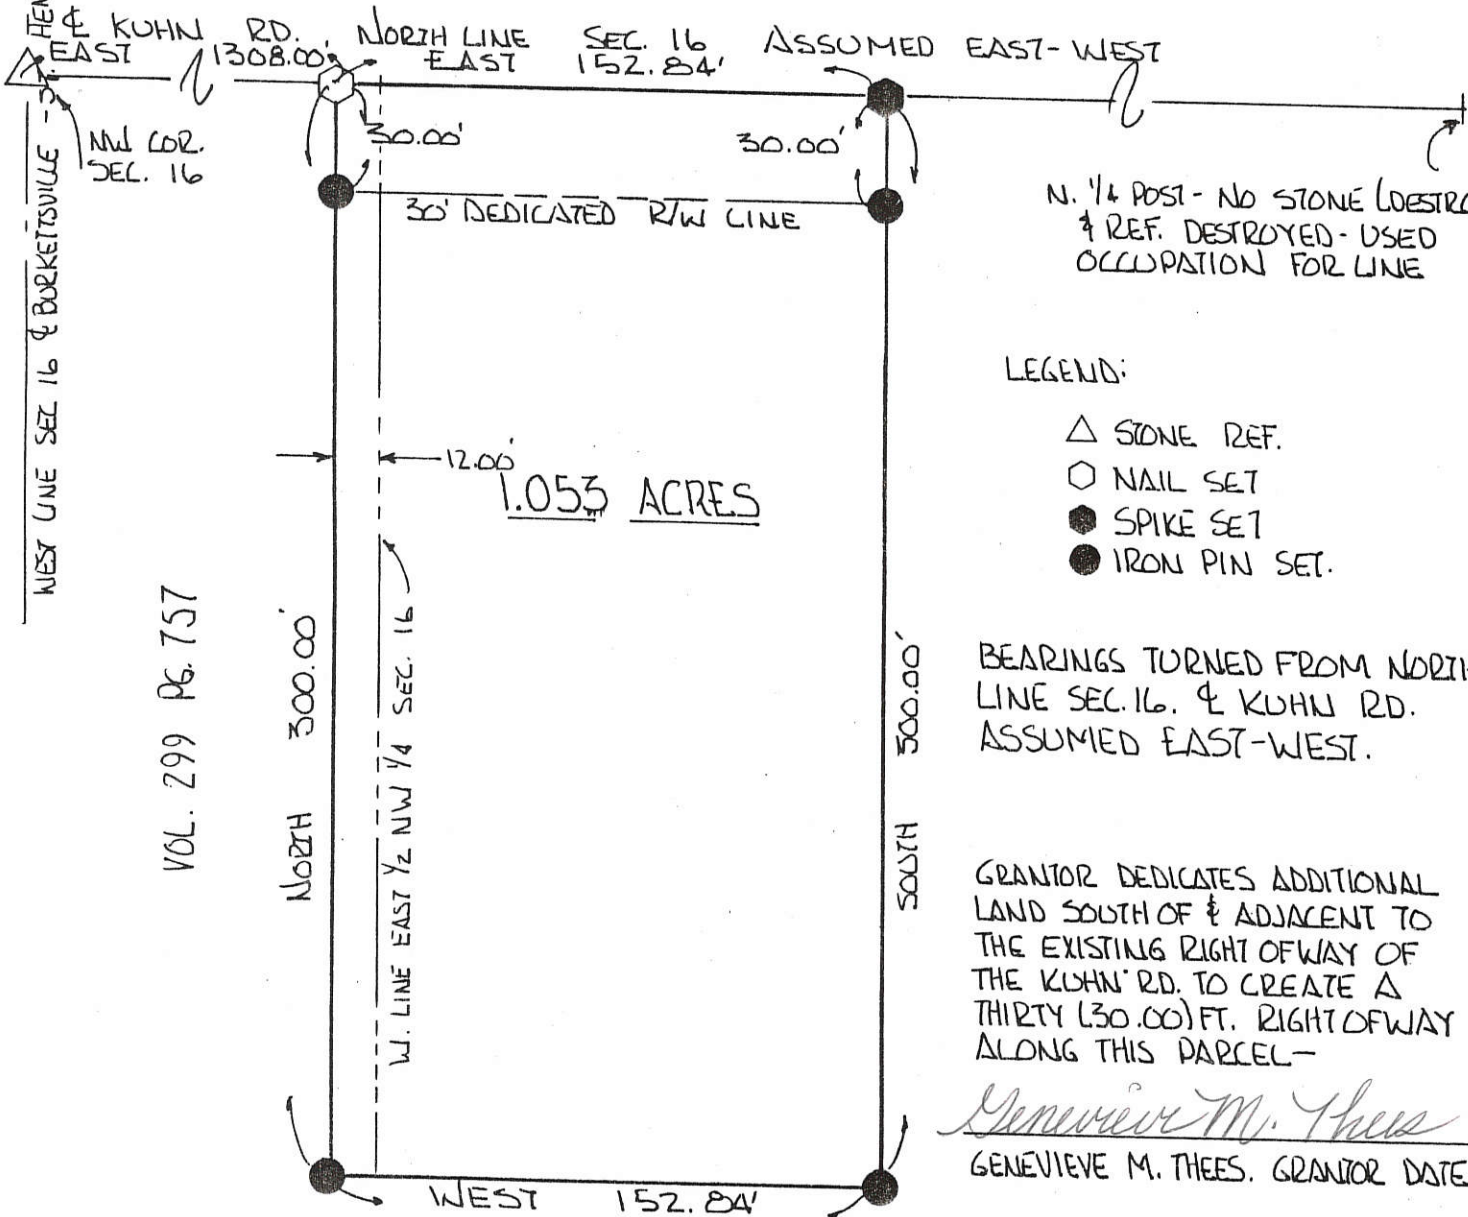 ℄ KUHN RD.
EAST 1308.00'
NORTH LINE SEC. 16 ASSUMED EAST-WEST
EAST 152.84'
NW COR.
SEC. 16
WEST LINE SEC 16 ℄ BURKETTSVILLE -
30.00'
30.00'
30' DEDICATED R/W LINE
N. 1/4 POST - NO STONE (DESTRO
& REF. DESTROYED - USED
OCCUPATION FOR LINE
LEGEND:
△ STONE REF.
⬡ NAIL SET
⬢ SPIKE SET
● IRON PIN SET.
12.00'
1.053 ACRES
VOL. 299 PG. 757
NORTH 300.00'
W. LINE EAST 1/2 NW 1/4 SEC. 16
SOUTH 300.00'
BEARINGS TURNED FROM NORTH
LINE SEC. 16. ℄ KUHN RD.
ASSUMED EAST-WEST.
GRANTOR DEDICATES ADDITIONAL
LAND SOUTH OF & ADJACENT TO
THE EXISTING RIGHT OF WAY OF
THE KUHN RD. TO CREATE A
THIRTY (30.00) FT. RIGHT OF WAY
ALONG THIS PARCEL-
Genevieve M. Thees
GENEVIEVE M. THEES. GRANTOR DATE
WEST 152.84'